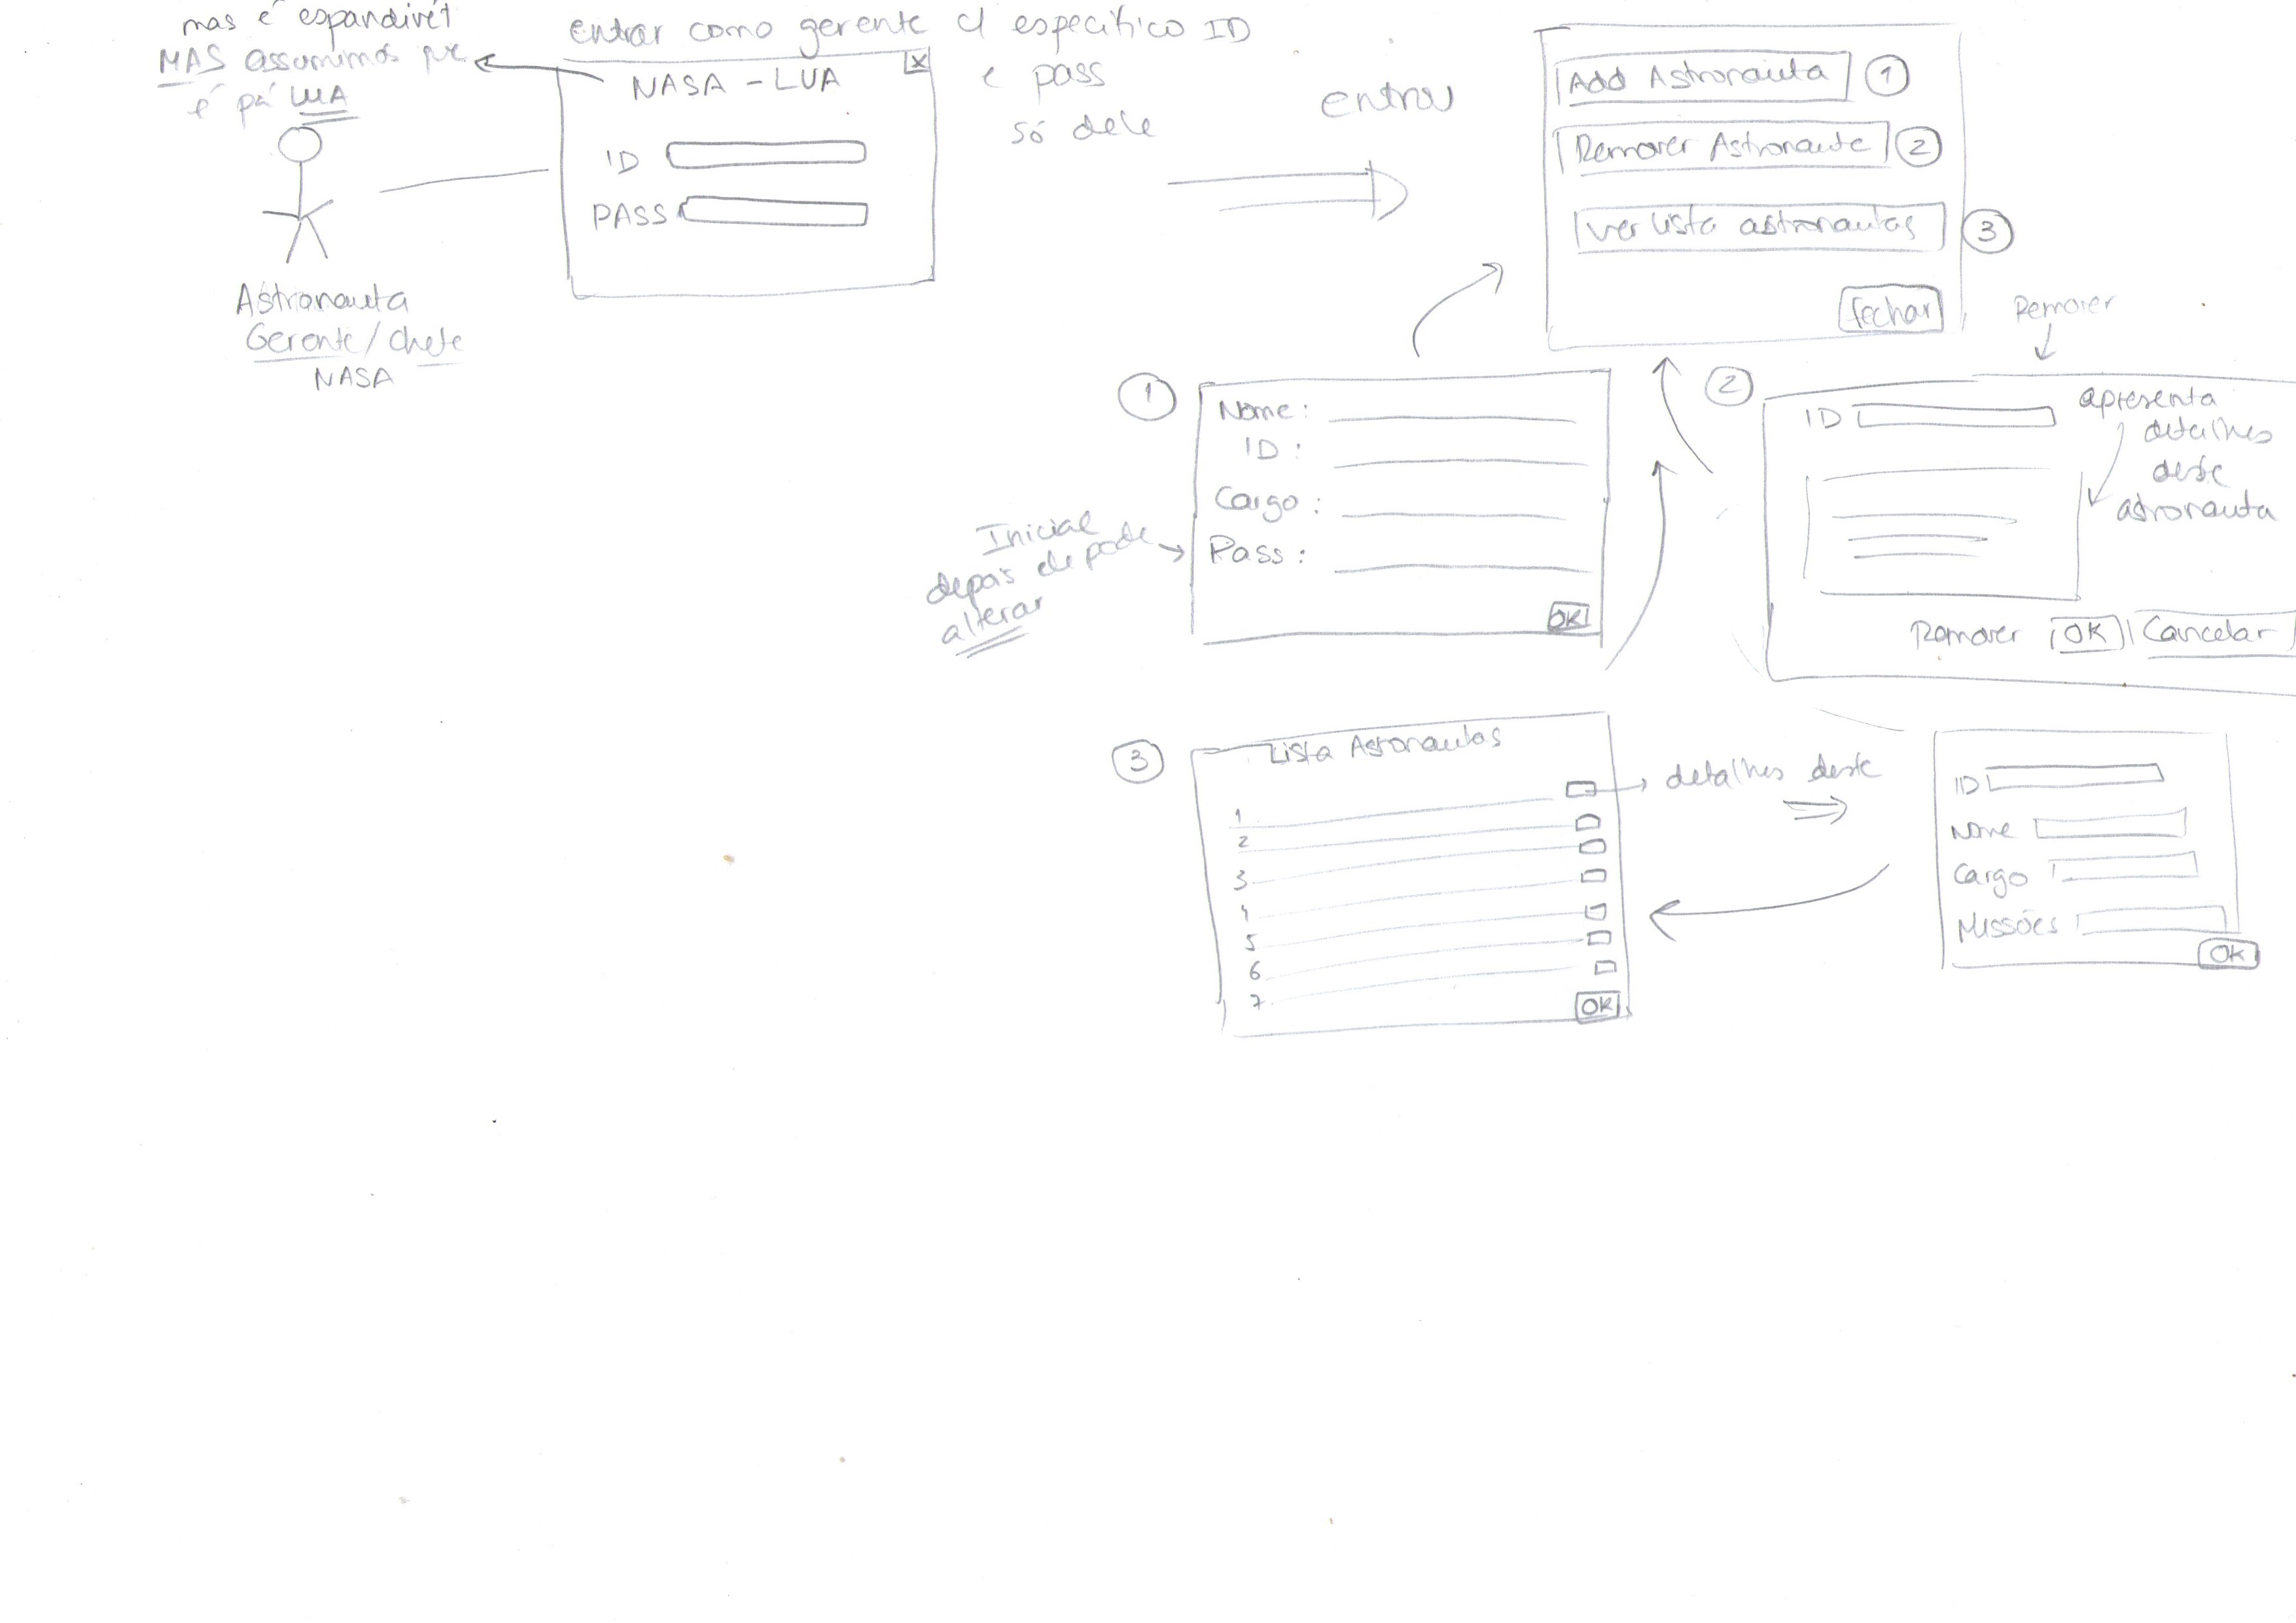 mas é espandivél
MAS assumimos que
é pá LUA
Astronauta
Gerente / Chefe
NASA
entrar como gerente c/ especifico ID
e pass
só dele
NASA - LUA
X
ID
PASS
entrou
Add Astronauta 1
Remover Astronauta 2
Ver lista astronautas 3
Fechar
1
Nome:
ID:
Cargo:
Pass:
OK
Inicial
depois ele pode
alterar
Remover
2
ID
apresenta
detalhes
deste
astronauta
Remover OK Cancelar
3
Lista Astronautas
1
2
3
4
5
6
7
OK
detalhes deste
ID
Nome
Cargo
Missões
OK